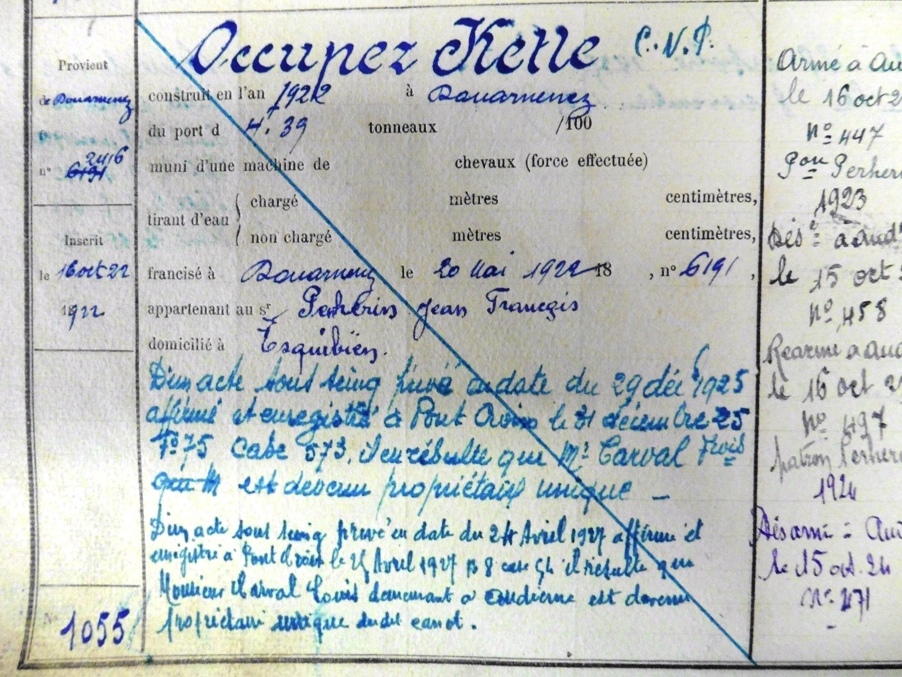 Provient
de Douarnenez
n° 2416
6191
Inscrit
le 16 oct 22
1922
N° 1055
Occupez Kelle C.N.P.
construit en l'an 1922 à Douarnenez
du port d 4.39 tonneaux /100
muni d'une machine de chevaux (force effectuée)
tirant d'eau
chargé mètres centimètres,
non chargé mètres centimètres,
francisé à Douarnenez le 20 Mai 1922 18 , n° 6191 ,
appartenant au sr Perherin Jean François
domicilié à Esquibien.
D'un acte sous seing privé en date du 29 déc 1925
affirmé et enregistré à Pont Croix le 31 décembre 25
F° 75 Case 573, il en résulte que Mr Carval
est devenu propriétaire unique –
D'un acte sous seing privé en date du 24 Avril 1927 affirmé et
enregistré à Pont Croix le 25 Avril 1927 case il résulte que
Monsieur Carval Louis demeurant à Audierne est devenu
propriétaire unique dudit canot.
Armé à Au
le 16 oct 2
N° 447
Pon Perher
1923
Dés à Aud
le 15 oct 2
N° 458
Réarmé à Aud
le 16 oct 2
N° 497
patron Perher
1924
Désarmé à Aud
le 15 oct. 24
N° 471